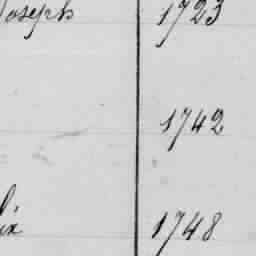 Joseph 1723
1742
1748